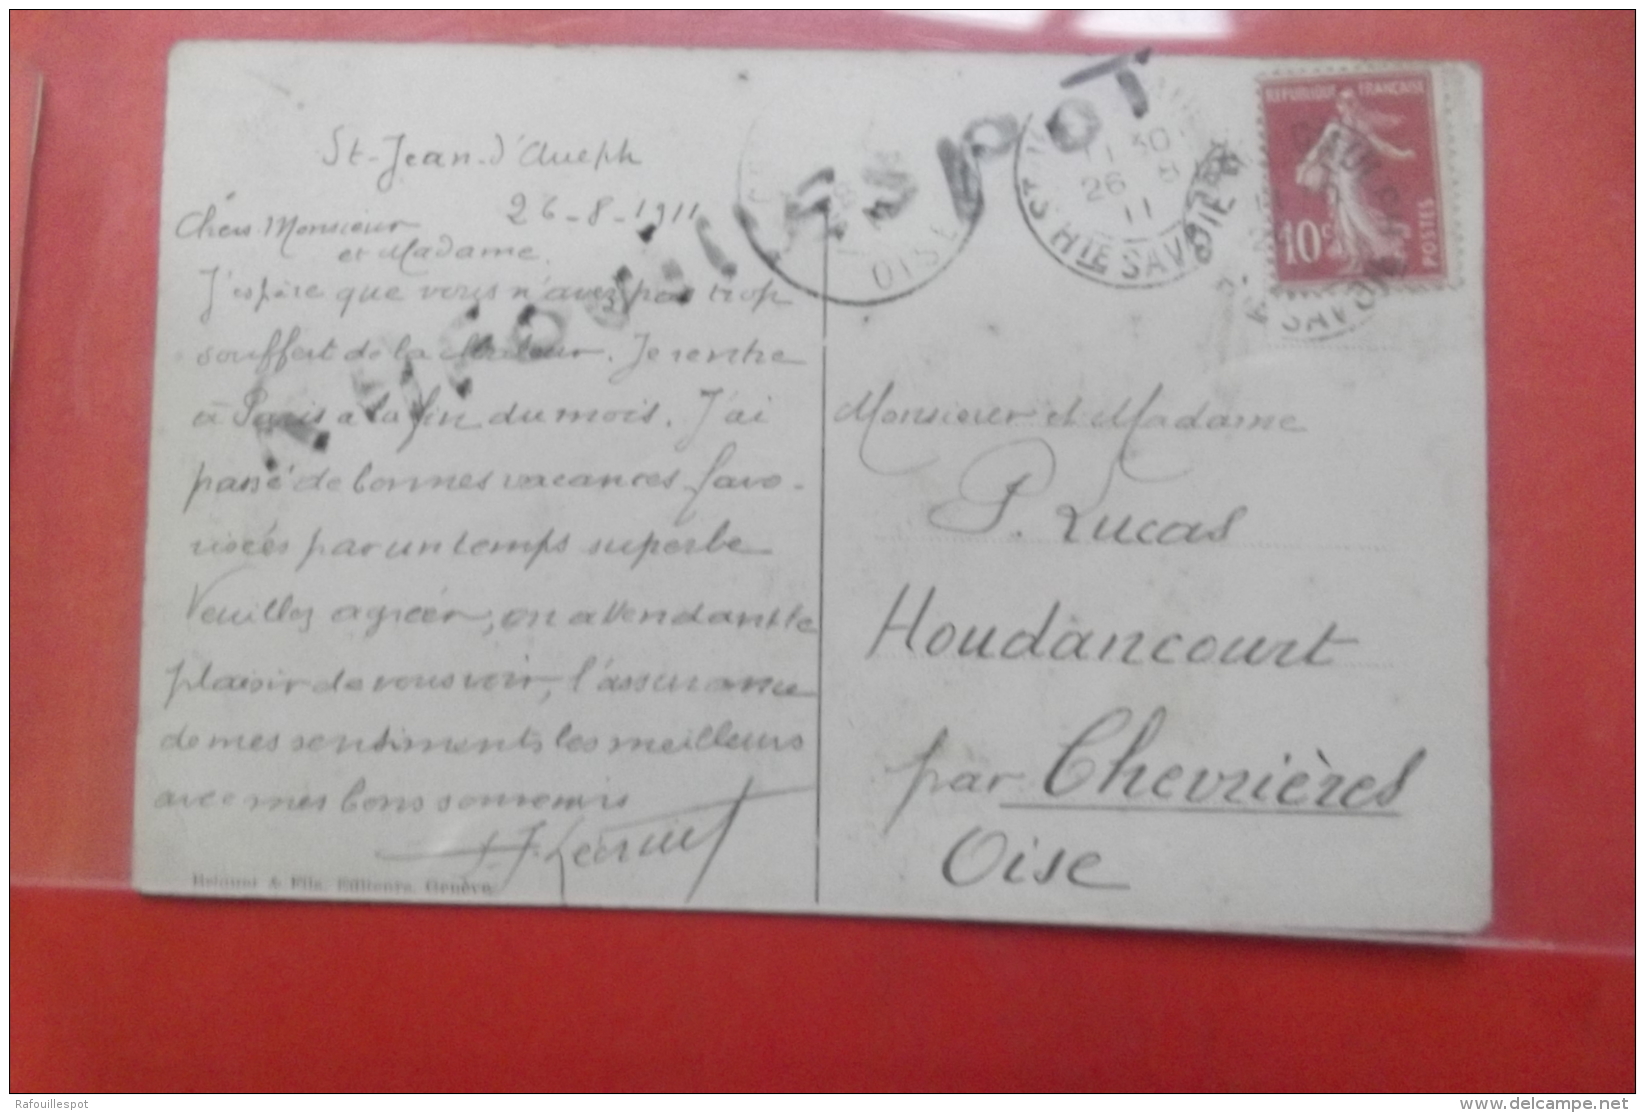 St-Jean-d'Aulph
26-8-1911
Chers Monsieur
et Madame.
J'espère que vous n'avez pas trop
souffert de la chaleur. Je rentre
à Paris a la fin du mois. J'ai
passé de bonnes vacances favo-
risées par un temps superbe
Veuillez agréer, en attendant le
plaisir de vous voir, l'assurance
de mes sentiments les meilleurs
avec mes bons souvenirs
& Fils, Editeurs, Genève
OISE
11 30
26 8
11
HTE SAVOIE
REPUBLIQUE FRANÇAISE
10c
POSTES
SAVOIE
Monsieur et Madame
P. Lucas
Houdancourt
par Chevrières
Oise
Rafouillespot
www.delcampe.net